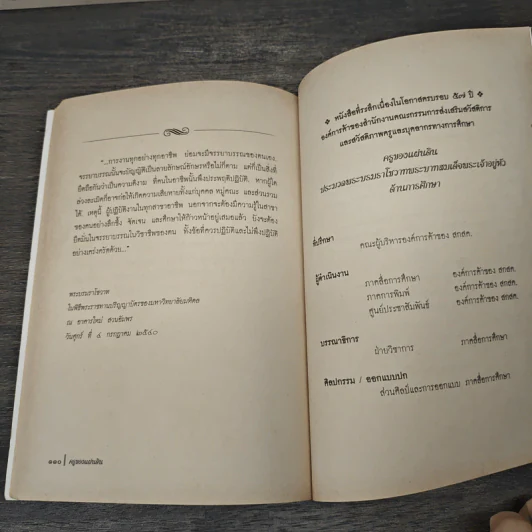 "...การงานทุกอย่างทุกอาชีพ ย่อมจะมีจรรยาบรรณของตนเอง.
จรรยาบรรณนั้นจะบัญญัติเป็นลายลักษณ์อักษรหรือไม่ก็ตาม แต่ก็เป็นสิ่งที่
ยึดถือกันว่าเป็นความดีงาม ที่คนในอาชีพนั้นพึงประพฤติปฏิบัติ, หากผู้ใด
ล่วงละเมิดก็อาจก่อให้เกิดความเสียหายทั้งแก่บุคคล หมู่คณะ และส่วนรวม
ได้. เหตุนี้ ผู้ปฏิบัติงานในทุกสาขาอาชีพ นอกจากจะต้องมีความรู้ในสาขา
ของตนอย่างลึกซึ้ง จัดเจน และศึกษาให้ก้าวหน้าอยู่เสมอแล้ว ยังจะต้อง
ยึดมั่นในจรรยาบรรณในวิชาชีพของตน ทั้งข้อที่ควรปฏิบัติและไม่พึงปฏิบัติ
อย่างเคร่งครัดด้วย..."
พระบรมราโชวาท
ในพิธีพระราชทานปริญญาบัตรของมหาวิทยาลัยมหิดล
ณ อาคารใหม่ สวนอัมพร
วันศุกร์ ที่ ๔ กรกฎาคม ๒๕๔๐
๑๑๐ | ครูของแผ่นดิน
❖ หนังสือที่ระลึกเนื่องในโอกาสครบรอบ ๕๗ ปี ❖
องค์การค้าของสำนักงานคณะกรรมการส่งเสริมสวัสดิการ
และสวัสดิภาพครูและบุคลากรทางการศึกษา
ครูของแผ่นดิน
ประมวลพระบรมราโชวาทพระบาทสมเด็จพระเจ้าอยู่หัว
ด้านการศึกษา
ที่ปรึกษา คณะผู้บริหารองค์การค้าของ สกสค.
ผู้ดำเนินงาน ภาคสื่อการศึกษา องค์การค้าของ สกสค.
ภาคการพิมพ์ องค์การค้าของ สกสค.
ศูนย์ประชาสัมพันธ์ องค์การค้าของ สกสค.
บรรณาธิการ ฝ่ายวิชาการ ภาคสื่อการศึกษา
ศิลปกรรม / ออกแบบปก
ส่วนศิลป์และการออกแบบ ภาคสื่อการศึกษา